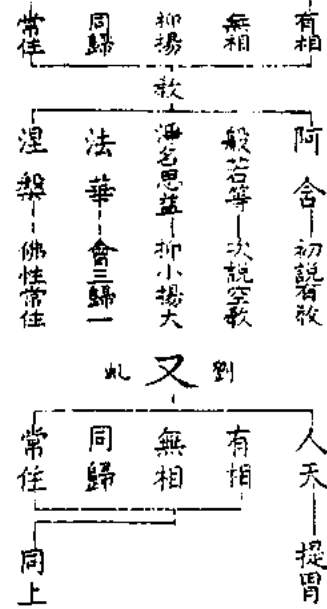 有相
無相
抑揚
同歸
常住
教
阿含 初說有教
般若等 次說空教
淨名思益 抑小揚大
法華 會三歸一
涅槃 佛性常住
又 劉虬
人天 提胃
有相
無相
同歸
常住
同上